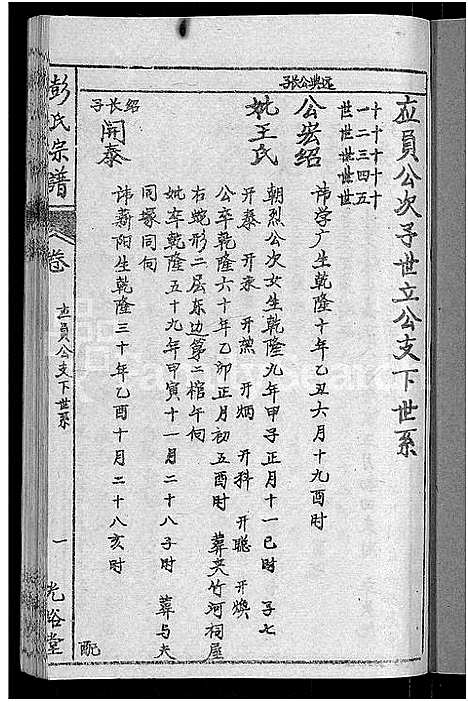 应員公次子世立公支下世系
十一世
十二世
十三世
十四世
十五世
远典公长子
公宏绍
讳学广生乾隆十年乙丑六月十九酉时
妣王氏
朝烈公次女生乾隆九年甲子正月十一巳时 子七
开泰 开永 开烈 开炳 开科 开聪 开焕
公卒乾隆六十年乙卯正月初五酉时 葬夹竹河祠屋
右蛇形二层东边第二棺午向
妣卒乾隆五十九年甲寅十一月二十八子时 葬与夫
同塚同向
绍长子
開泰
讳新阳生乾隆三十年乙酉十月二十八亥时
配
彭氏宗譜
卷
应員公支下世系
一
光裕堂